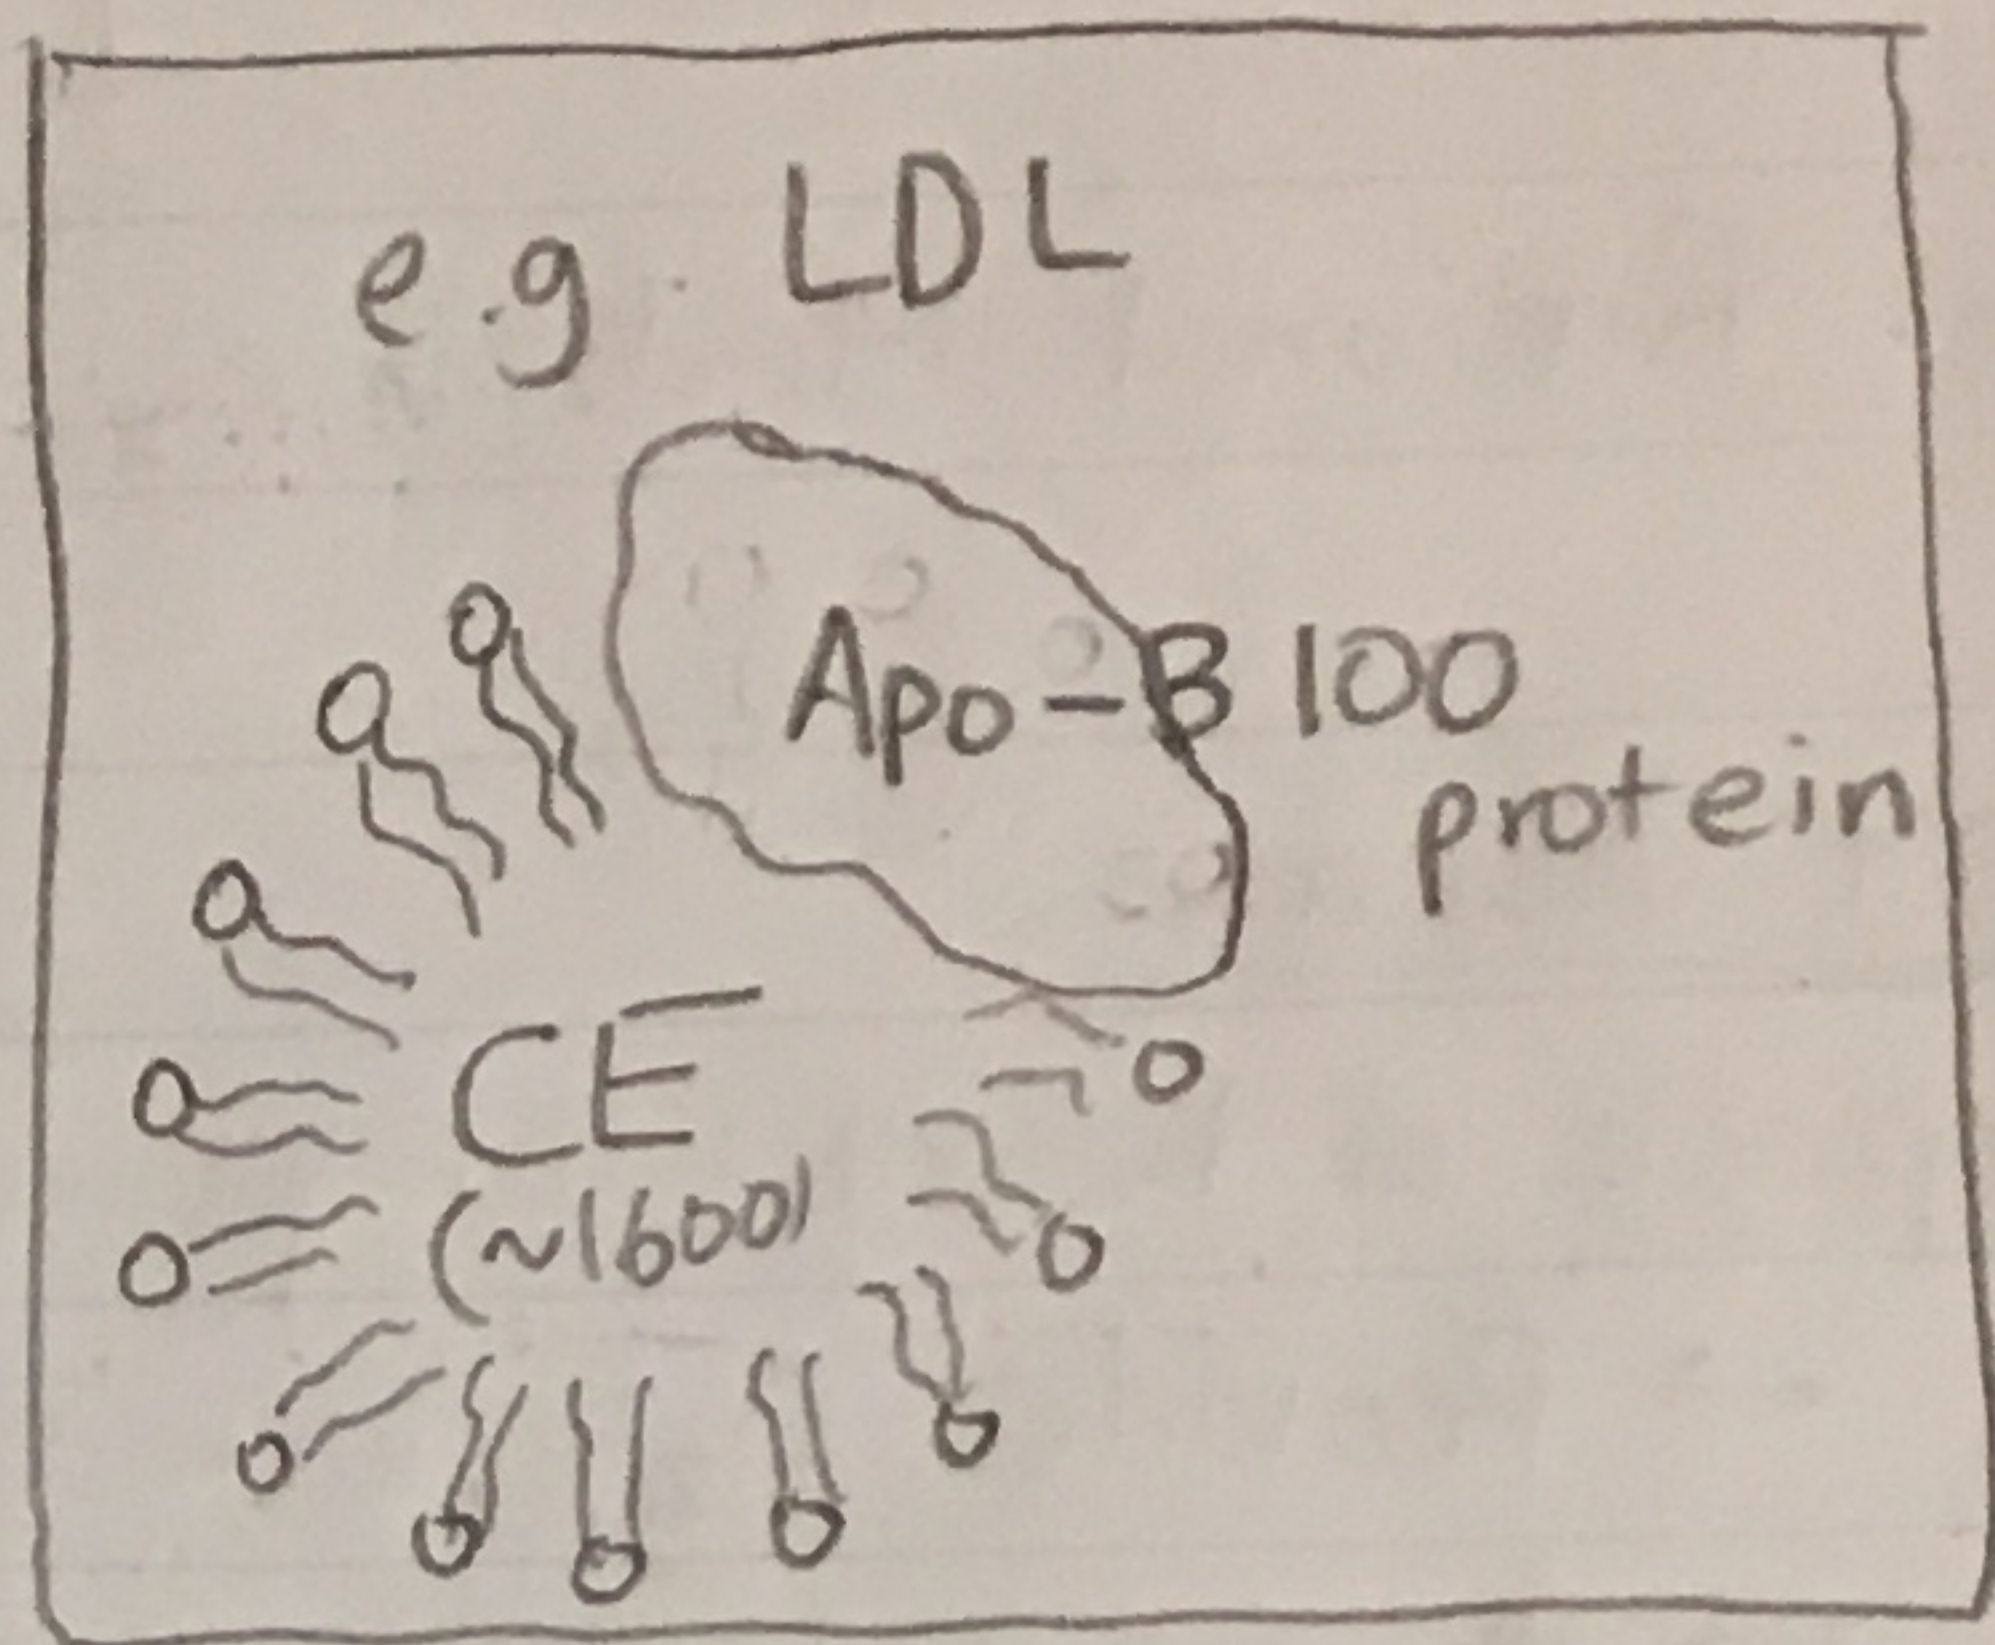 e.g. LDL
Apo-B 100
protein
CE
(~1600)